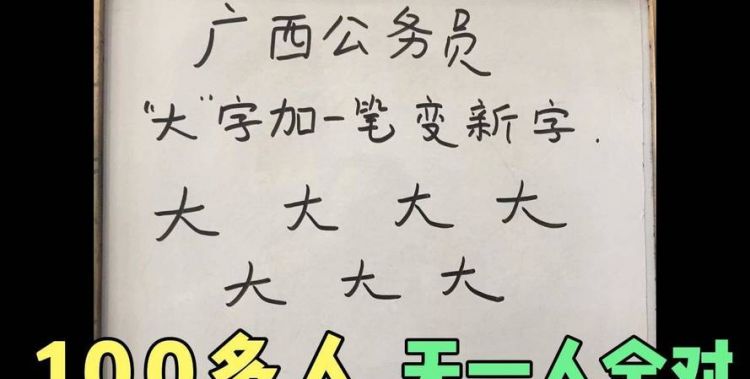 广西公务员
“大”字加一笔变新字.
大 大 大 大
大 大 大
100多人 无一人全对